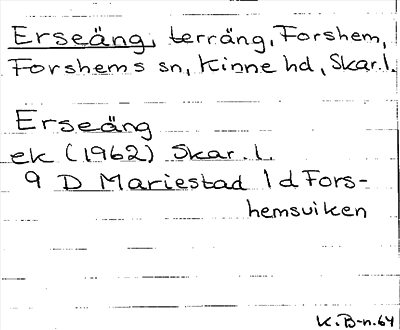 Erseäng, terräng, Forshem,
Forshems sn, Kinne hd, Skar.l.
Erseäng
ek (1962) Skar.l.
9 D Mariestad 1 d Fors-
hemsviken
K.B-n.64